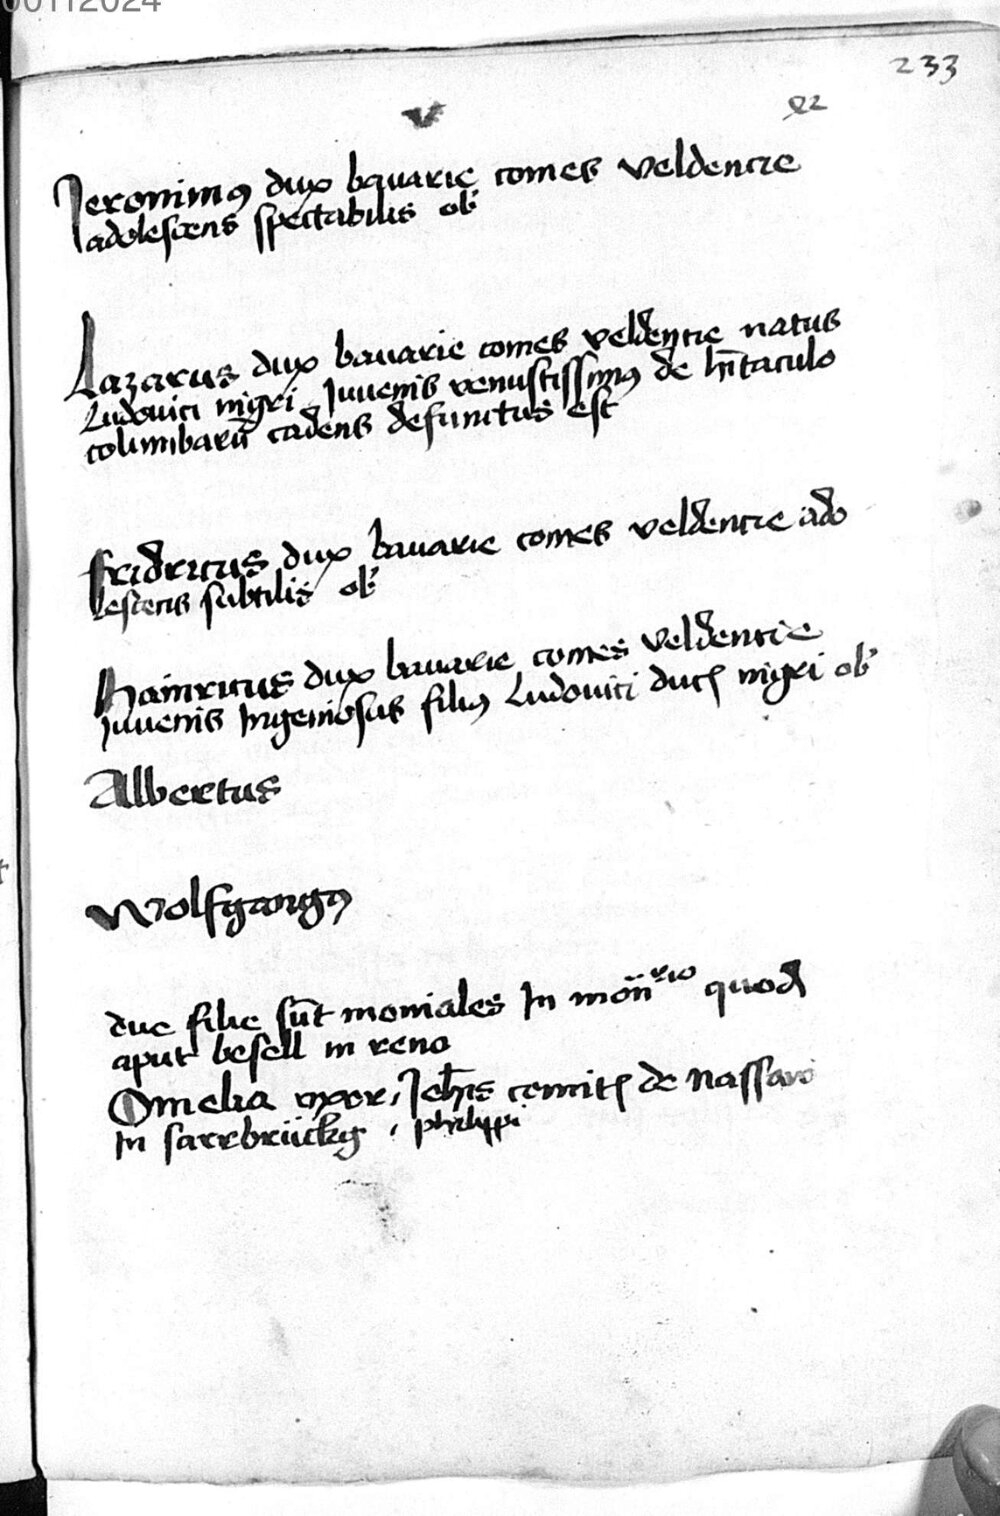 00112024
233
v
Jeronimus dux bavarie comes veldencie
adolescens spectabilis ob'
Lazarus dux bavarie comes veldencie natus
Ludovici nigri Juvenis venustissimus de
columbarū cadens defunctus est
Fridricus dux bavarie comes veldencie ado
lescens subtilis ob'
Hainricus dux bavarie comes veldencie
Juvenis Ingeniosus filius Ludovici ducis nigri ob'
Albertus
Wolfgangus
due filie sūt moniales In quod
aput besell in reno
Omelia uxor, Joh̄is comitis de Nassaw
In sarrbrückg , philippi